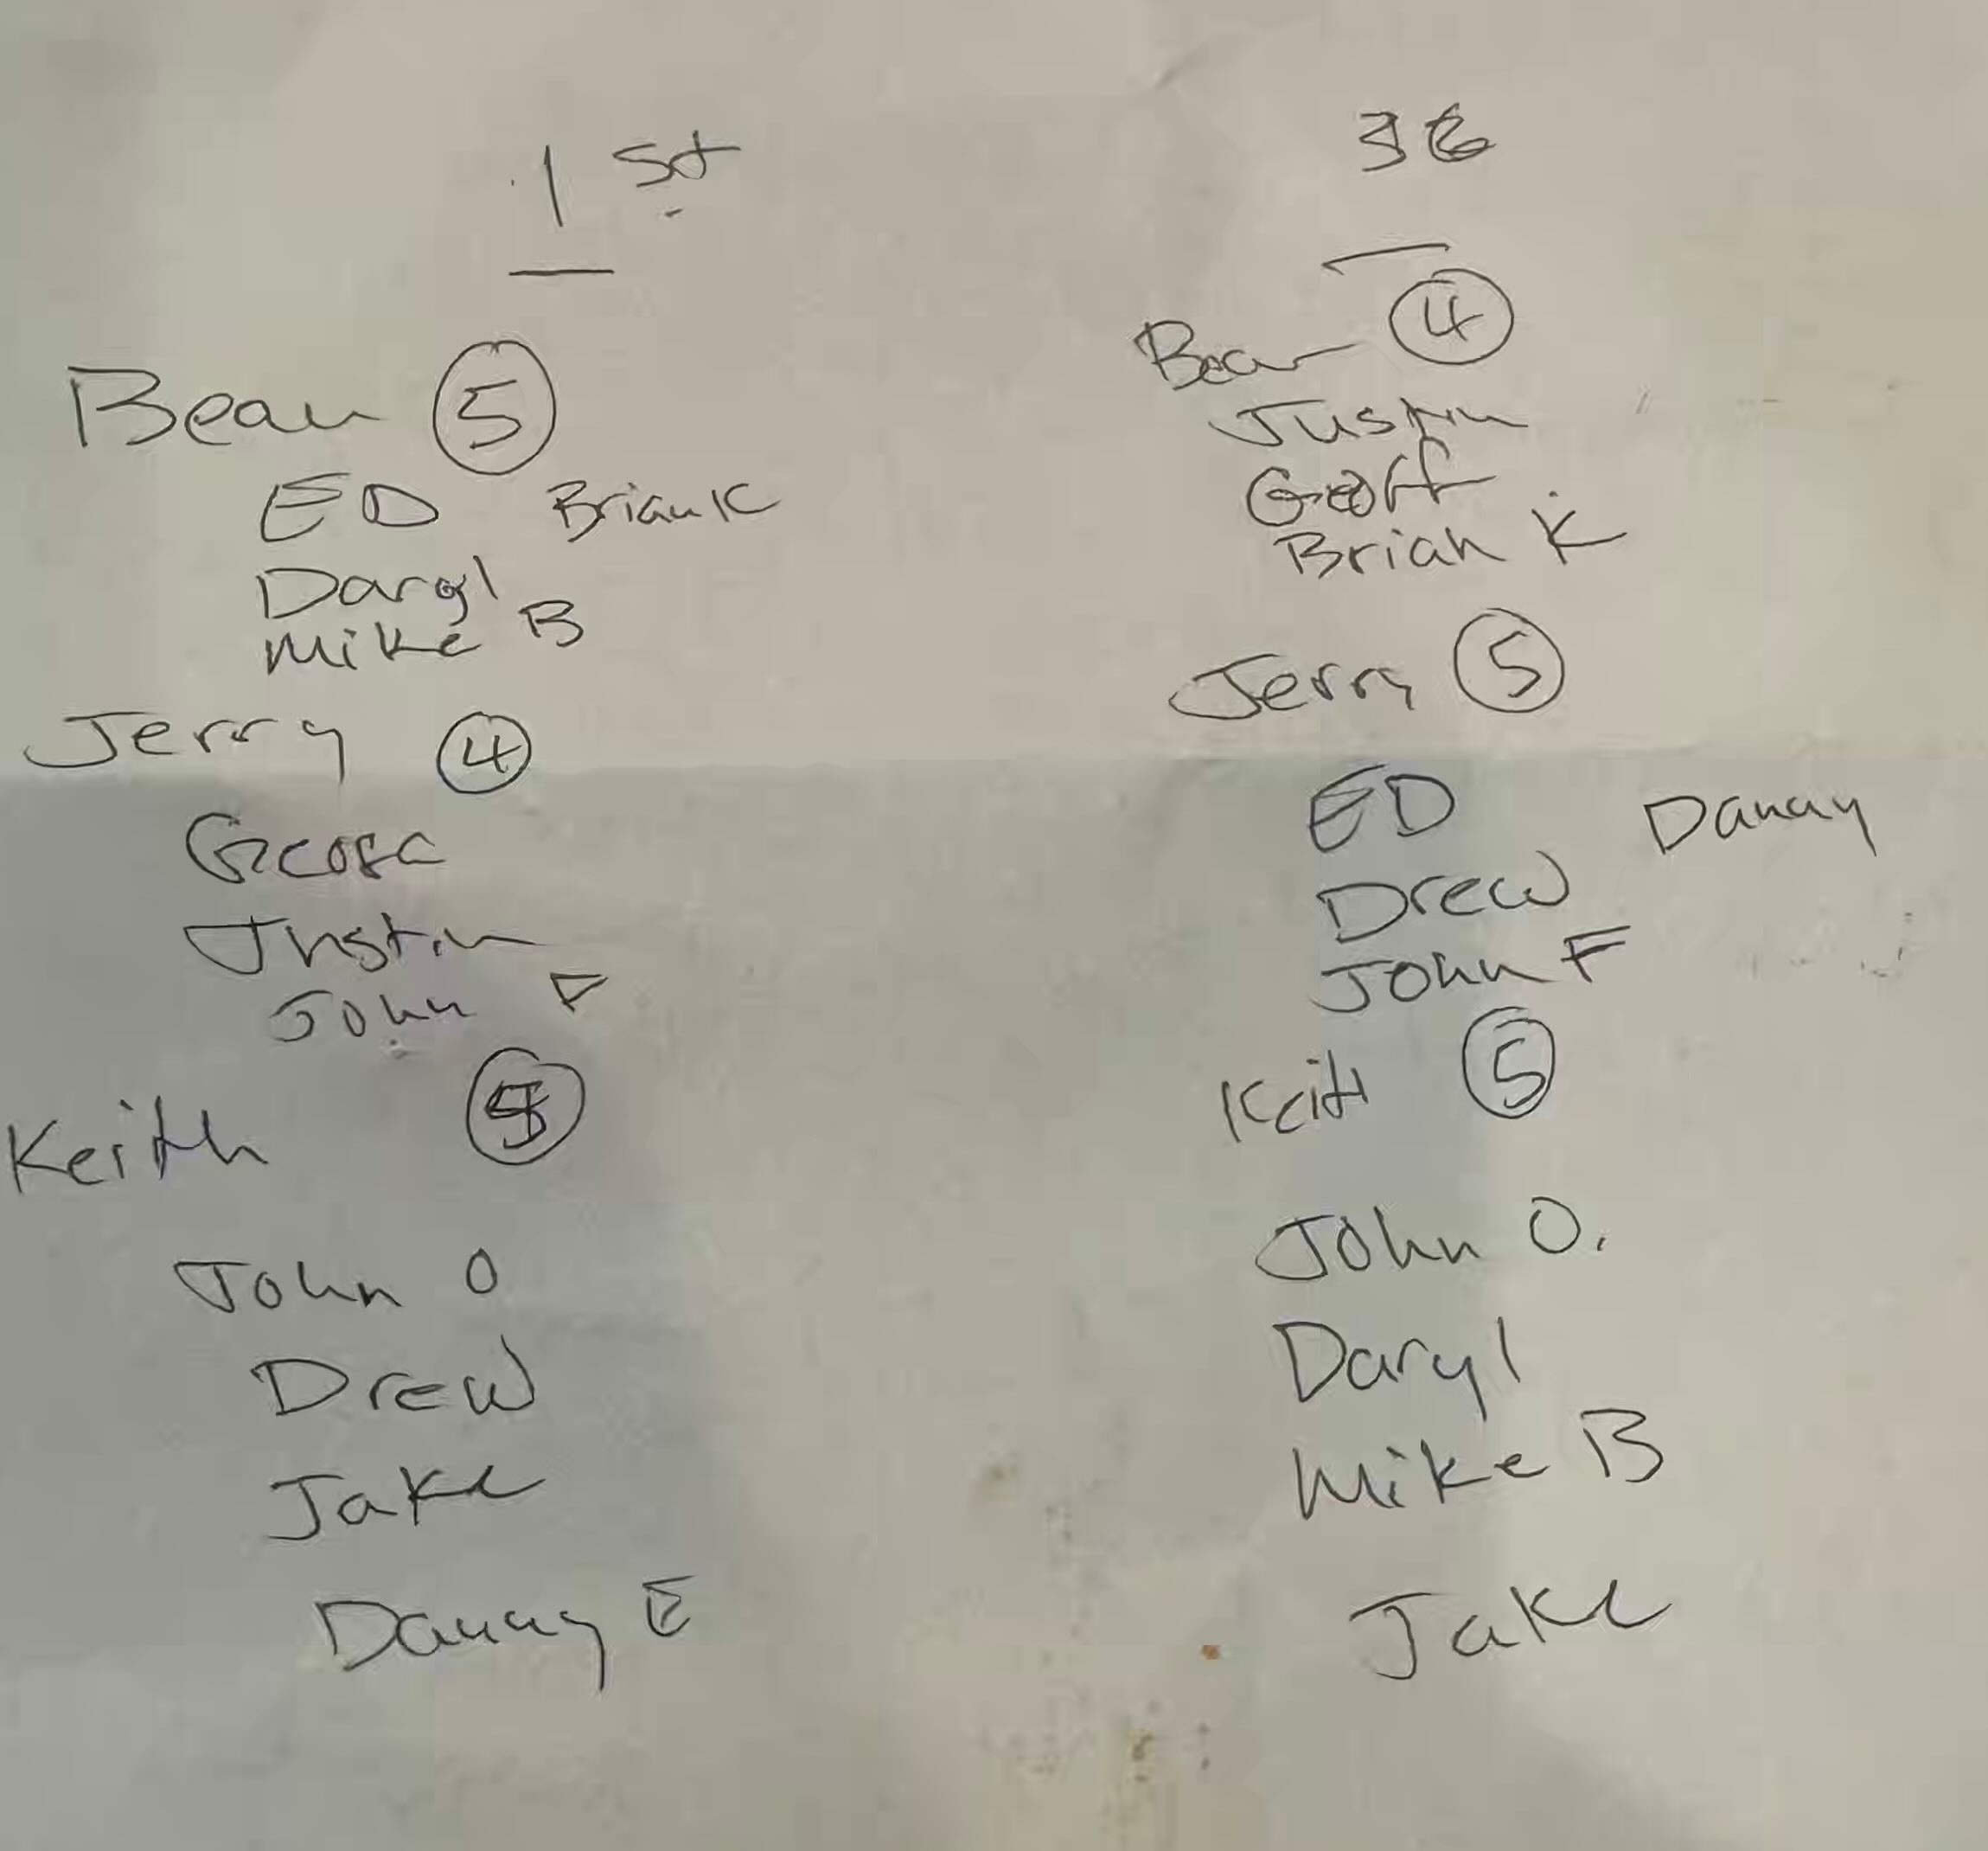 1 st
Beau 5
ED Brian K
Daryl
Mike B
Jerry 4
Geoff
Justin
John F
Keith 5
John O
Drew
Jake
Danny E
36
Beau 4
Justin
Geoff
Brian K
Jerry 5
ED Danny
Drew
John F
Keith 5
John O.
Daryl
Mike B
Jake